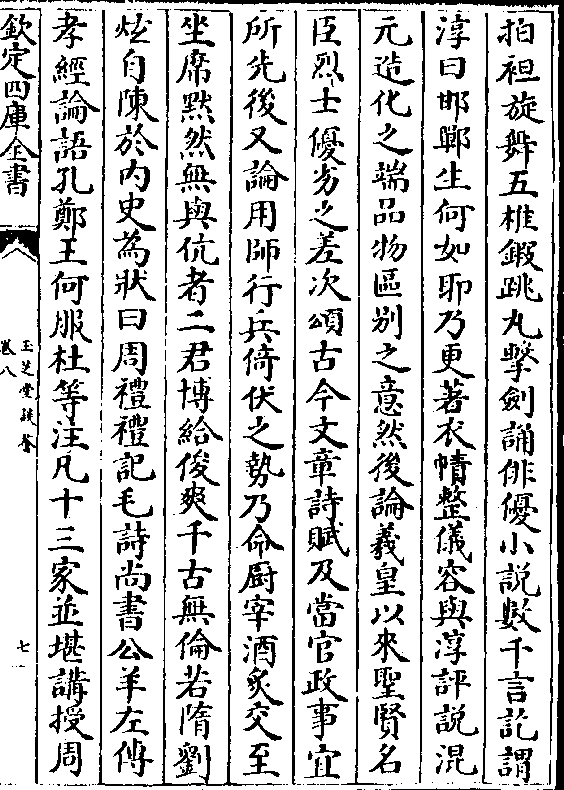 拍袒旋舞五椎鍜跳丸擊劍誦俳優小說數千言訖謂
淳曰邯鄲生何如耶乃更著衣幘整儀容與淳評說混
元造化之端品物區别之意然後論羲皇以來聖賢名
臣烈士優劣之差次頌古今文章詩賦及當官政事宜
所先後又論用師行兵倚伏之勢乃命厨宰酒炙交至
坐席黙然無與伉者二君博給俊爽千古無倫若隋劉
炫自陳於内史為狀曰周禮禮記毛詩尚書公羊左傳
孝經論語孔鄭王何服杜等注凡十三家並堪講授周
欽定四庫全書
玉芝堂談薈
卷八
七